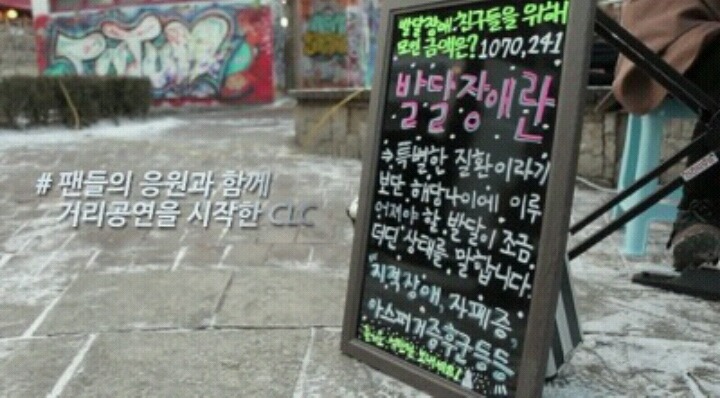 발달장애 친구들을 위해
모인 금액은? 1070,241
발달장애란
→ 특별한 질환이라기
보단, 해당나이에 이루
어져야 할 발달이 조금
더딘 상태를 말합니다.
지적장애, 자폐증,
아스퍼거증후군 등등
# 팬들의 응원과 함께
거리공연을 시작한 CLC